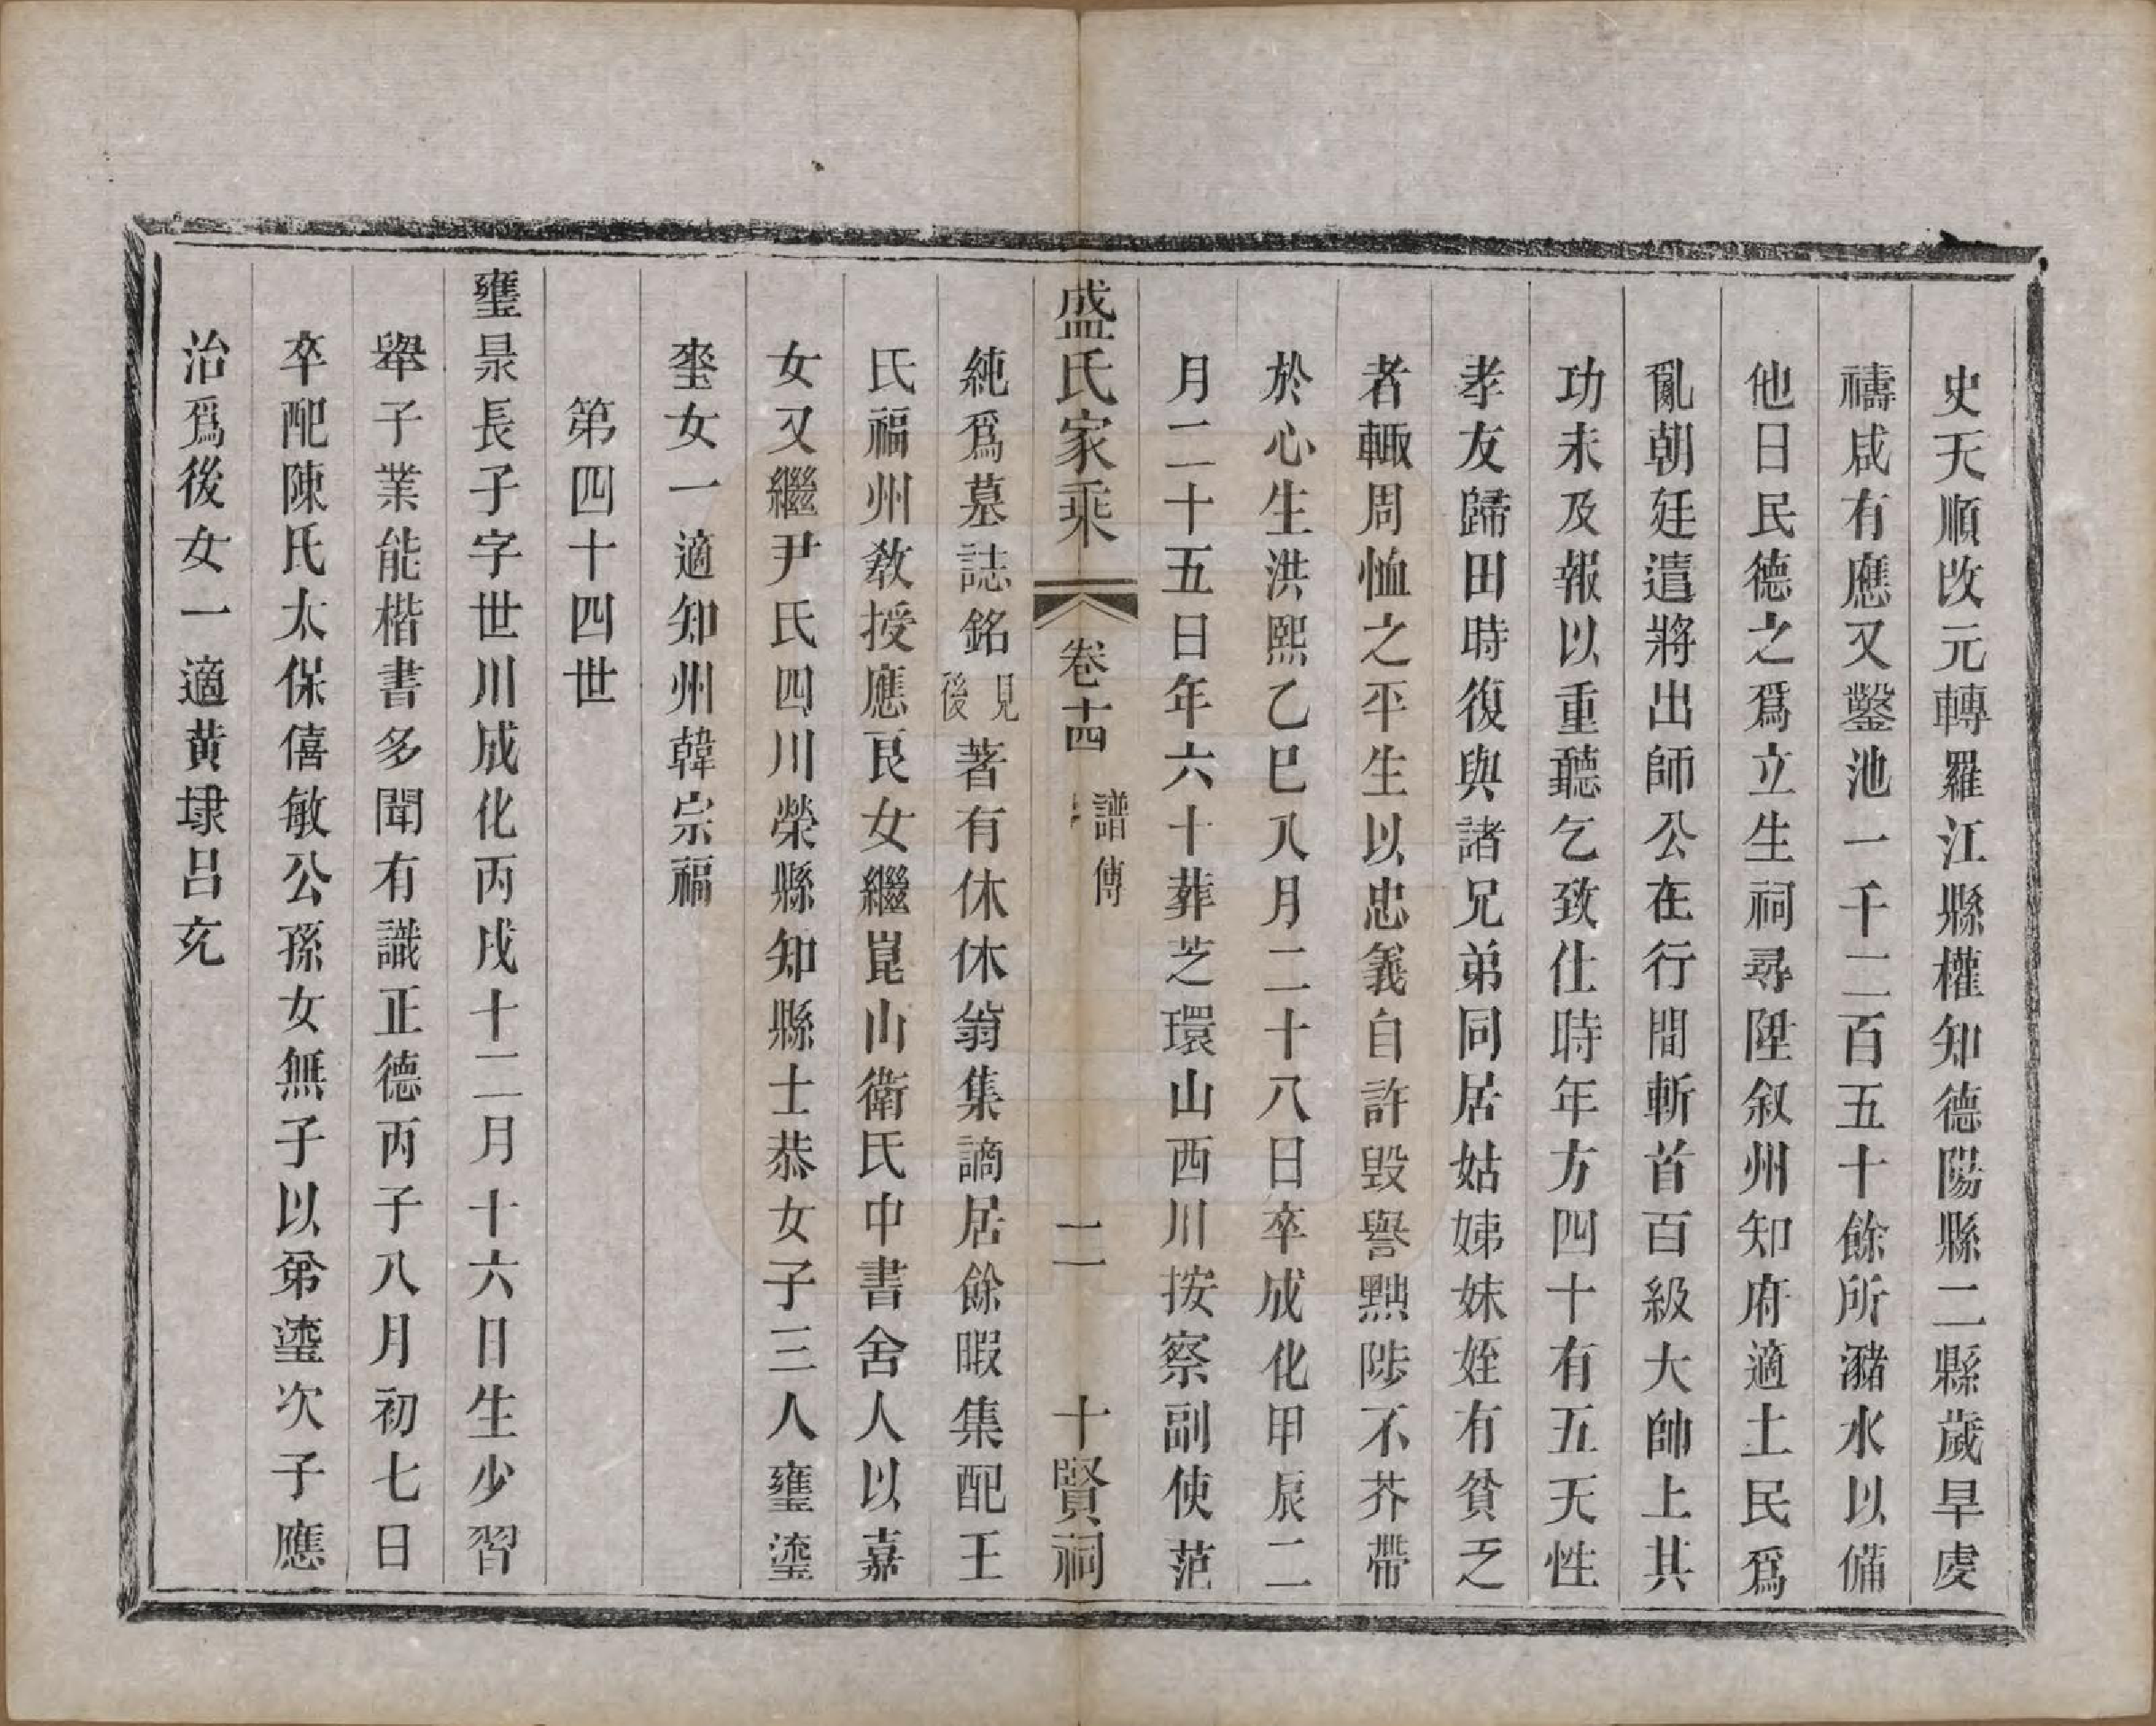 史天順改元轉羅江縣權知德陽縣二縣歲旱虔
禱咸有應又鑿池一千二百五十餘所瀦水以備
他日民德之爲立生祠尋陞叙州知府適土民爲
亂朝廷遣將出師公在行間斬首百級大帥上其
功未及報以重聽乞致仕時年方四十有五天性
孝友歸田時復與諸兄弟同居姑娣妹姪有貧乏
者輙周恤之平生以忠義自許毀譽黜陟不芥帶
於心生洪熙乙巳八月二十八日卒成化甲辰二
月二十五日年六十葬芝環山西川按察副使范
盛氏家乘 卷十四 譜傳 二 十賢祠
純爲墓誌銘見後著有休休翁集謫居餘暇集配王
氏福州敎授應良女繼崑山衛氏中書舍人以嘉
女又繼尹氏四川榮縣知縣士恭女子三人壅塗
𡏖女一適知州韓宗福
第四十四世
壅㬎長子字世川成化丙戌十二月十六日生少習
舉子業能楷書多聞有識正德丙子八月初七日
卒配陳氏太保僖敏公孫女無子以弟塗次子應
治爲後女一適黄埭呂充